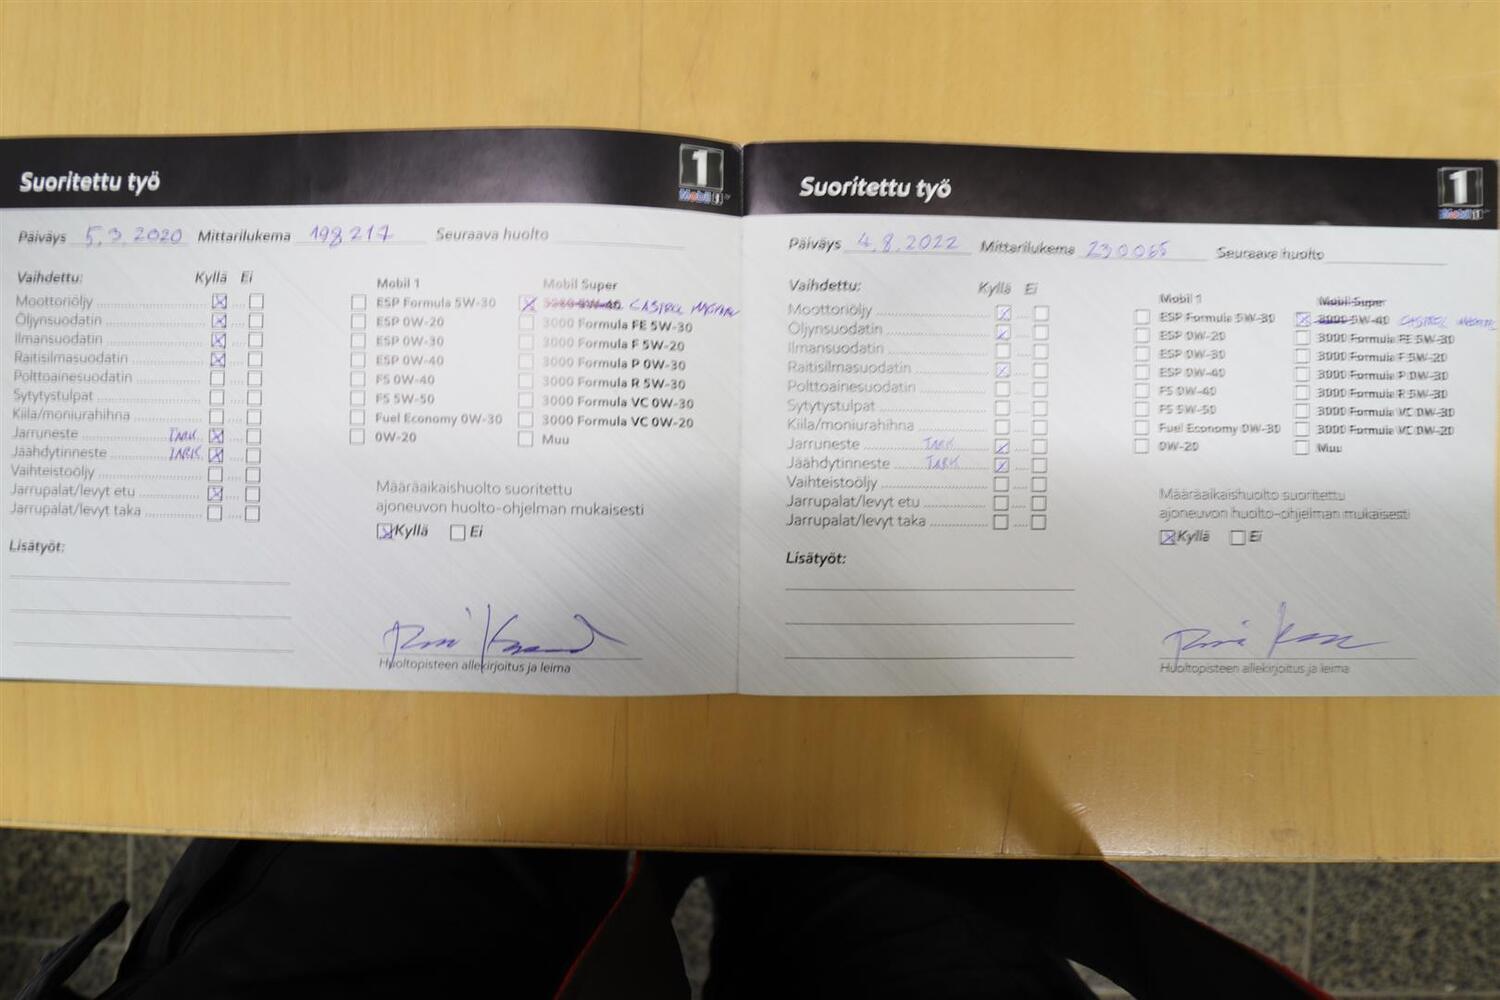 Suoritettu työ
1
Mobil 1
Päiväys 5.3.2020 Mittarilukema 198217 Seuraava huolto
Vaihdettu: Kyllä Ei
Moottoriöljy
Öljynsuodatin
Ilmansuodatin
Raitisilmasuodatin
Polttoainesuodatin
Sytytystulpat
Kiila/moniurahihna
Jarruneste TARK.
Jäähdytinneste TARK.
Vaihteistoöljy
Jarrupalat/levyt etu
Jarrupalat/levyt taka
Lisätyöt:
Mobil 1
ESP Formula 5W-30
ESP 0W-20
ESP 0W-30
ESP 0W-40
FS 0W-40
FS 5W-50
Fuel Economy 0W-30
0W-20
Mobil Super
5W-40 CASTROL
3000 Formula FE 5W-30
3000 Formula F 5W-20
3000 Formula P 0W-30
3000 Formula R 5W-30
3000 Formula VC 0W-30
3000 Formula VC 0W-20
Muu
Määräaikaishuolto suoritettu
ajoneuvon huolto-ohjelman mukaisesti
Kyllä Ei
Huoltopisteen allekirjoitus ja leima
Suoritettu työ
1
Mobil 1
Päiväys 4.8.2022 Mittarilukema 230065 Seuraava huolto
Vaihdettu: Kyllä Ei
Moottoriöljy
Öljynsuodatin
Ilmansuodatin
Raitisilmasuodatin
Polttoainesuodatin
Sytytystulpat
Kiila/moniurahihna
Jarruneste TARK.
Jäähdytinneste TARK.
Vaihteistoöljy
Jarrupalat/levyt etu
Jarrupalat/levyt taka
Lisätyöt:
Mobil 1
ESP Formula 5W-30
ESP 0W-20
ESP 0W-30
ESP 0W-40
FS 0W-40
FS 5W-50
Fuel Economy 0W-30
0W-20
Mobil Super
3000 5W-40 CASTROL
3000 Formula FE 5W-30
3000 Formula F 5W-20
3000 Formula P 0W-30
3000 Formula R 5W-30
3000 Formula VC 0W-30
3000 Formula VC 0W-20
Muu
Määräaikaishuolto suoritettu
ajoneuvon huolto-ohjelman mukaisesti
Kyllä Ei
Huoltopisteen allekirjoitus ja leima